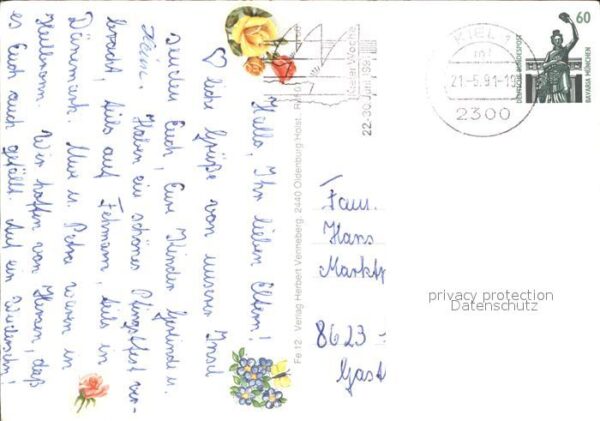 Hallo, Ihr lieben Eltern!
♡ liche Grüße von unserer Insel
senden Euch, Eure Kinder Gerlinde u.
Hein. Haben ein schönes Pfingstfest ver-
bracht, teils auf Fehmarn, teils in
Dänemark. Uwe u. Petra waren in
Heilbronn. Wir hoffen von Herzen, daß
es Euch auch gefällt. Auf ein Wiedersehn!
Fe 12 Verlag Herbert Venneberg, 2440 Oldenburg Holst.
Kieler Woche
22-30. Juni 1991
KIEL 1
21-6.91-19
2300
60
DEUTSCHE BUNDESPOST
BAVARIA MÜNCHEN
Fam.
Hans
Marktp
8623
Gast
privacy protection
Datenschutz